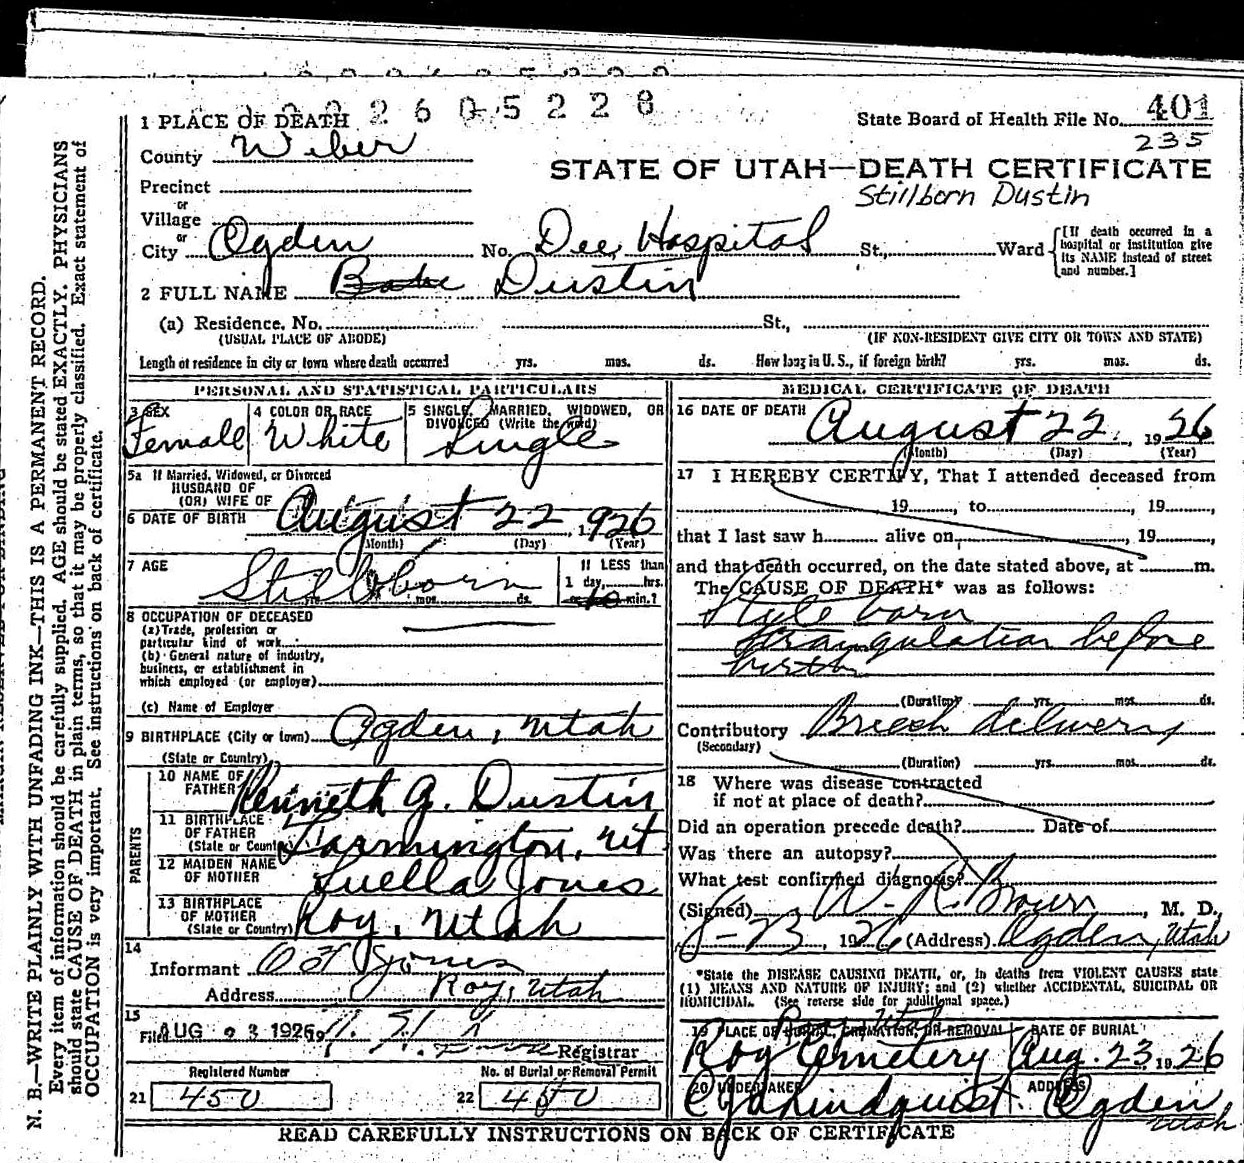 2 6 0 5 2 2 8
State Board of Health File No. 401
235
1 PLACE OF DEATH
County Weber
STATE OF UTAH—DEATH CERTIFICATE
Stillborn Dustin
Precinct
or
Village
or
City Ogden No. Dee Hospital St., Ward [If death occurred in a hospital or institution give its NAME instead of street and number.]
2 FULL NAME Dustin
(a) Residence. No. St.,
(USUAL PLACE OF ABODE) (IF NON-RESIDENT GIVE CITY OR TOWN AND STATE)
Length of residence in city or town where death occurred yrs. mos. ds. How long in U. S., if foreign birth? yrs. mos. ds.
PERSONAL AND STATISTICAL PARTICULARS
3 SEX
Female
4 COLOR OR RACE
White
5 SINGLE, MARRIED, WIDOWED, OR DIVORCED (Write the word)
Single
5a If Married, Widowed, or Divorced
HUSBAND OF
(OR) WIFE OF
6 DATE OF BIRTH August 22, 1926
(Month) (Day) (Year)
7 AGE Stillborn
yrs. mos. ds.
If LESS than
1 day, hrs.
or min.?
8 OCCUPATION OF DECEASED
(a) Trade, profession or
particular kind of work
(b) General nature of industry,
business, or establishment in
which employed (or employer)
(c) Name of Employer
9 BIRTHPLACE (City or town) Ogden, Utah
(State or Country)
PARENTS
10 NAME OF FATHER Kenneth G. Dustin
11 BIRTHPLACE OF FATHER (State or Country) Farmington, Ut
12 MAIDEN NAME OF MOTHER Luella Jones
13 BIRTHPLACE OF MOTHER (State or Country) Roy, Utah
14
Informant Jones
Address Roy, Utah
15
Filed AUG 23 1926
Registrar
Registered Number
21 450
No. of Burial or Removal Permit
22 450
MEDICAL CERTIFICATE OF DEATH
16 DATE OF DEATH August 22, 1926
(Month) (Day) (Year)
17 I HEREBY CERTIFY, That I attended deceased from
19 , to , 19 ,
that I last saw h alive on , 19 ,
and that death occurred, on the date stated above, at m.
The CAUSE OF DEATH* was as follows:
Style born
strangulation before
birth
(Duration) yrs. mos. ds.
Contributory Breech delivery
(Secondary)
(Duration) yrs. mos. ds.
18 Where was disease contracted
if not at place of death?
Did an operation precede death? Date of
Was there an autopsy?
What test confirmed diagnosis?
(Signed) W. R. Brown, M. D.
8-23, 1926 (Address) Ogden, Utah
*State the DISEASE CAUSING DEATH, or, in deaths from VIOLENT CAUSES state
(1) MEANS AND NATURE OF INJURY; and (2) whether ACCIDENTAL, SUICIDAL OR
HOMICIDAL. (See reverse side for additional space.)
19 PLACE OF BURIAL, CREMATION, OR REMOVAL
Roy Cemetery
DATE OF BURIAL
Aug. 23, 1926
20 UNDERTAKER
Lindquist
ADDRESS
Ogden
Utah
READ CAREFULLY INSTRUCTIONS ON BACK OF CERTIFICATE
N. B.—WRITE PLAINLY WITH UNFADING INK—THIS IS A PERMANENT RECORD.
Every item of information should be carefully supplied. AGE should be stated EXACTLY. PHYSICIANS
should state CAUSE OF DEATH in plain terms, so that it may be properly classified. Exact statement of
OCCUPATION is very important. See instructions on back of certificate.